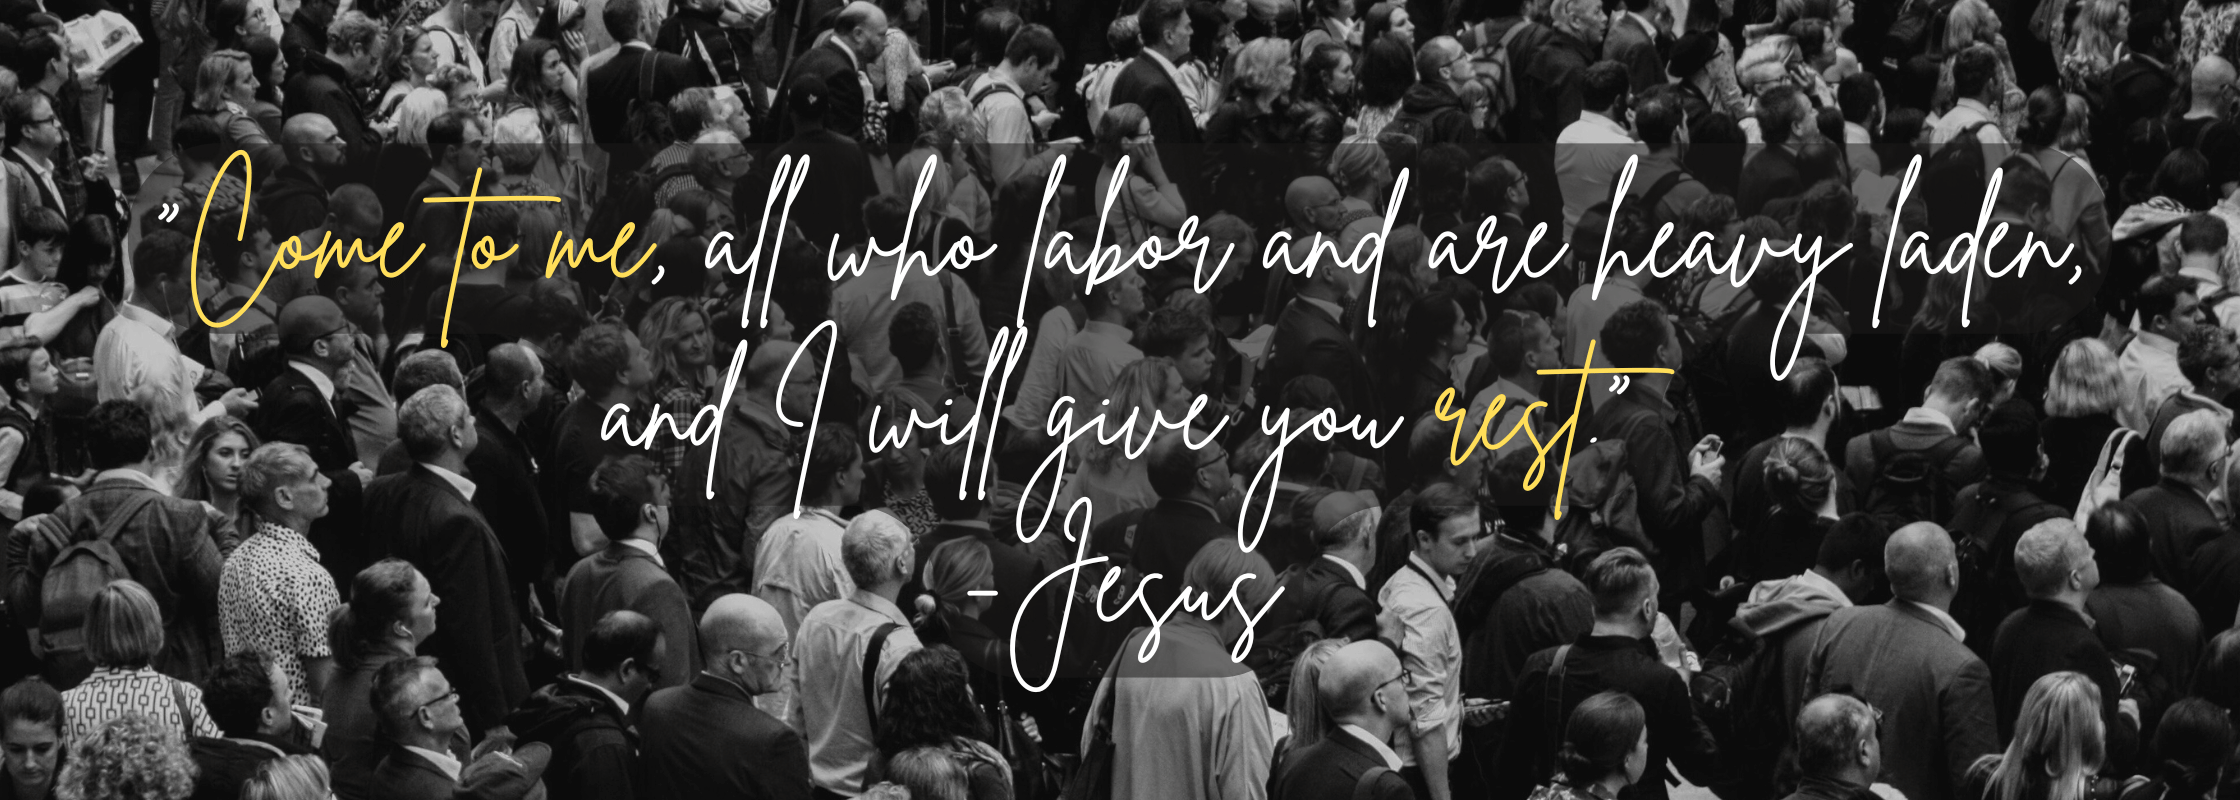 "Come to me, all who labor and are heavy laden,
and I will give you rest."
- Jesus